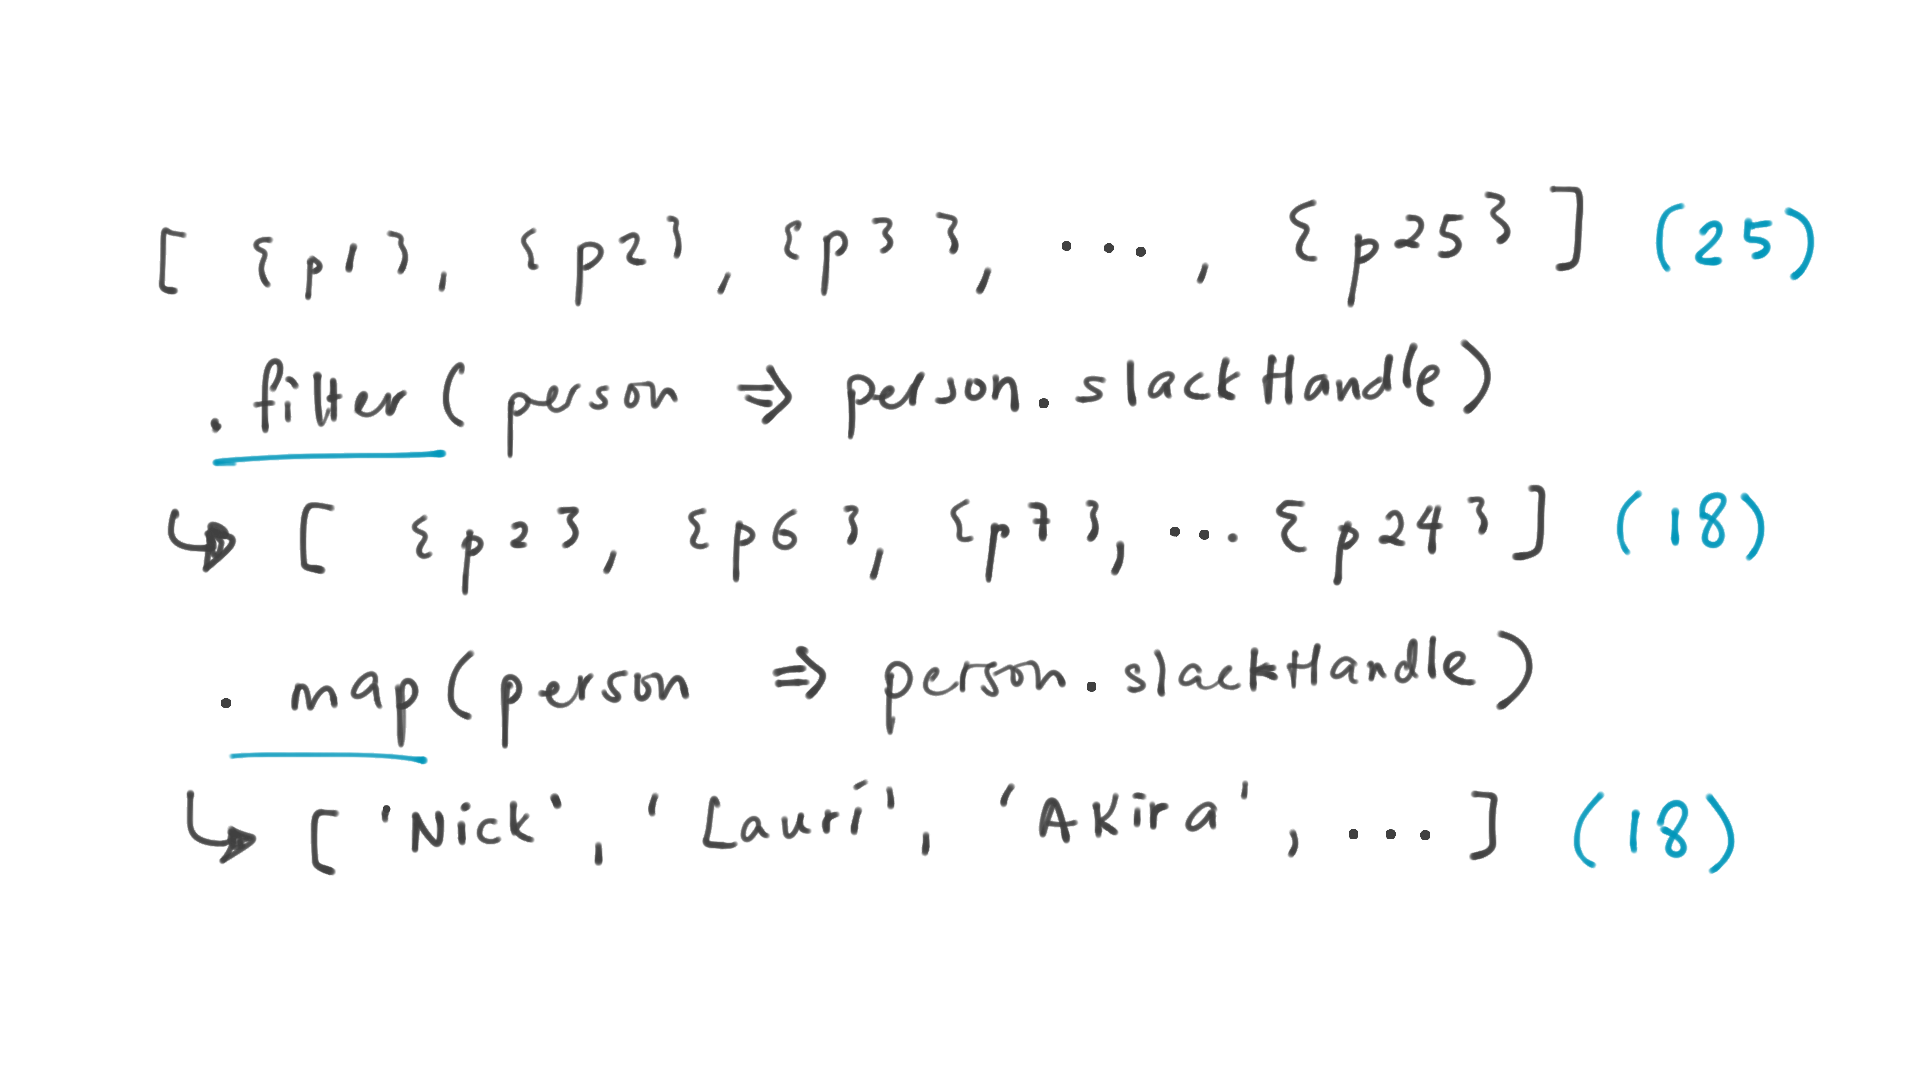 [ {p1}, {p2}, {p3}, ..., {p25} ] (25)
.filter( person => person.slackHandle)
↳ [ {p2}, {p6}, {p7}, ... {p24} ] (18)
. map(person => person.slackHandle)
↳ [ 'Nick', 'Lauri', 'Akira', ... ] (18)